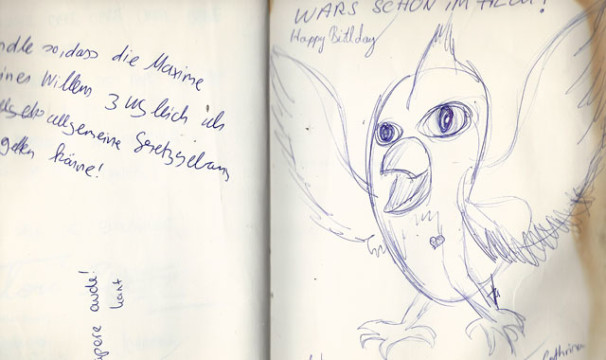 ndle so, dass die Maxime
ines Willens zugleich als
allgemeine Gesetzgebung
gelten könne!
pere aude!
kant
WARS SCHÖN IM
Happy Birthday